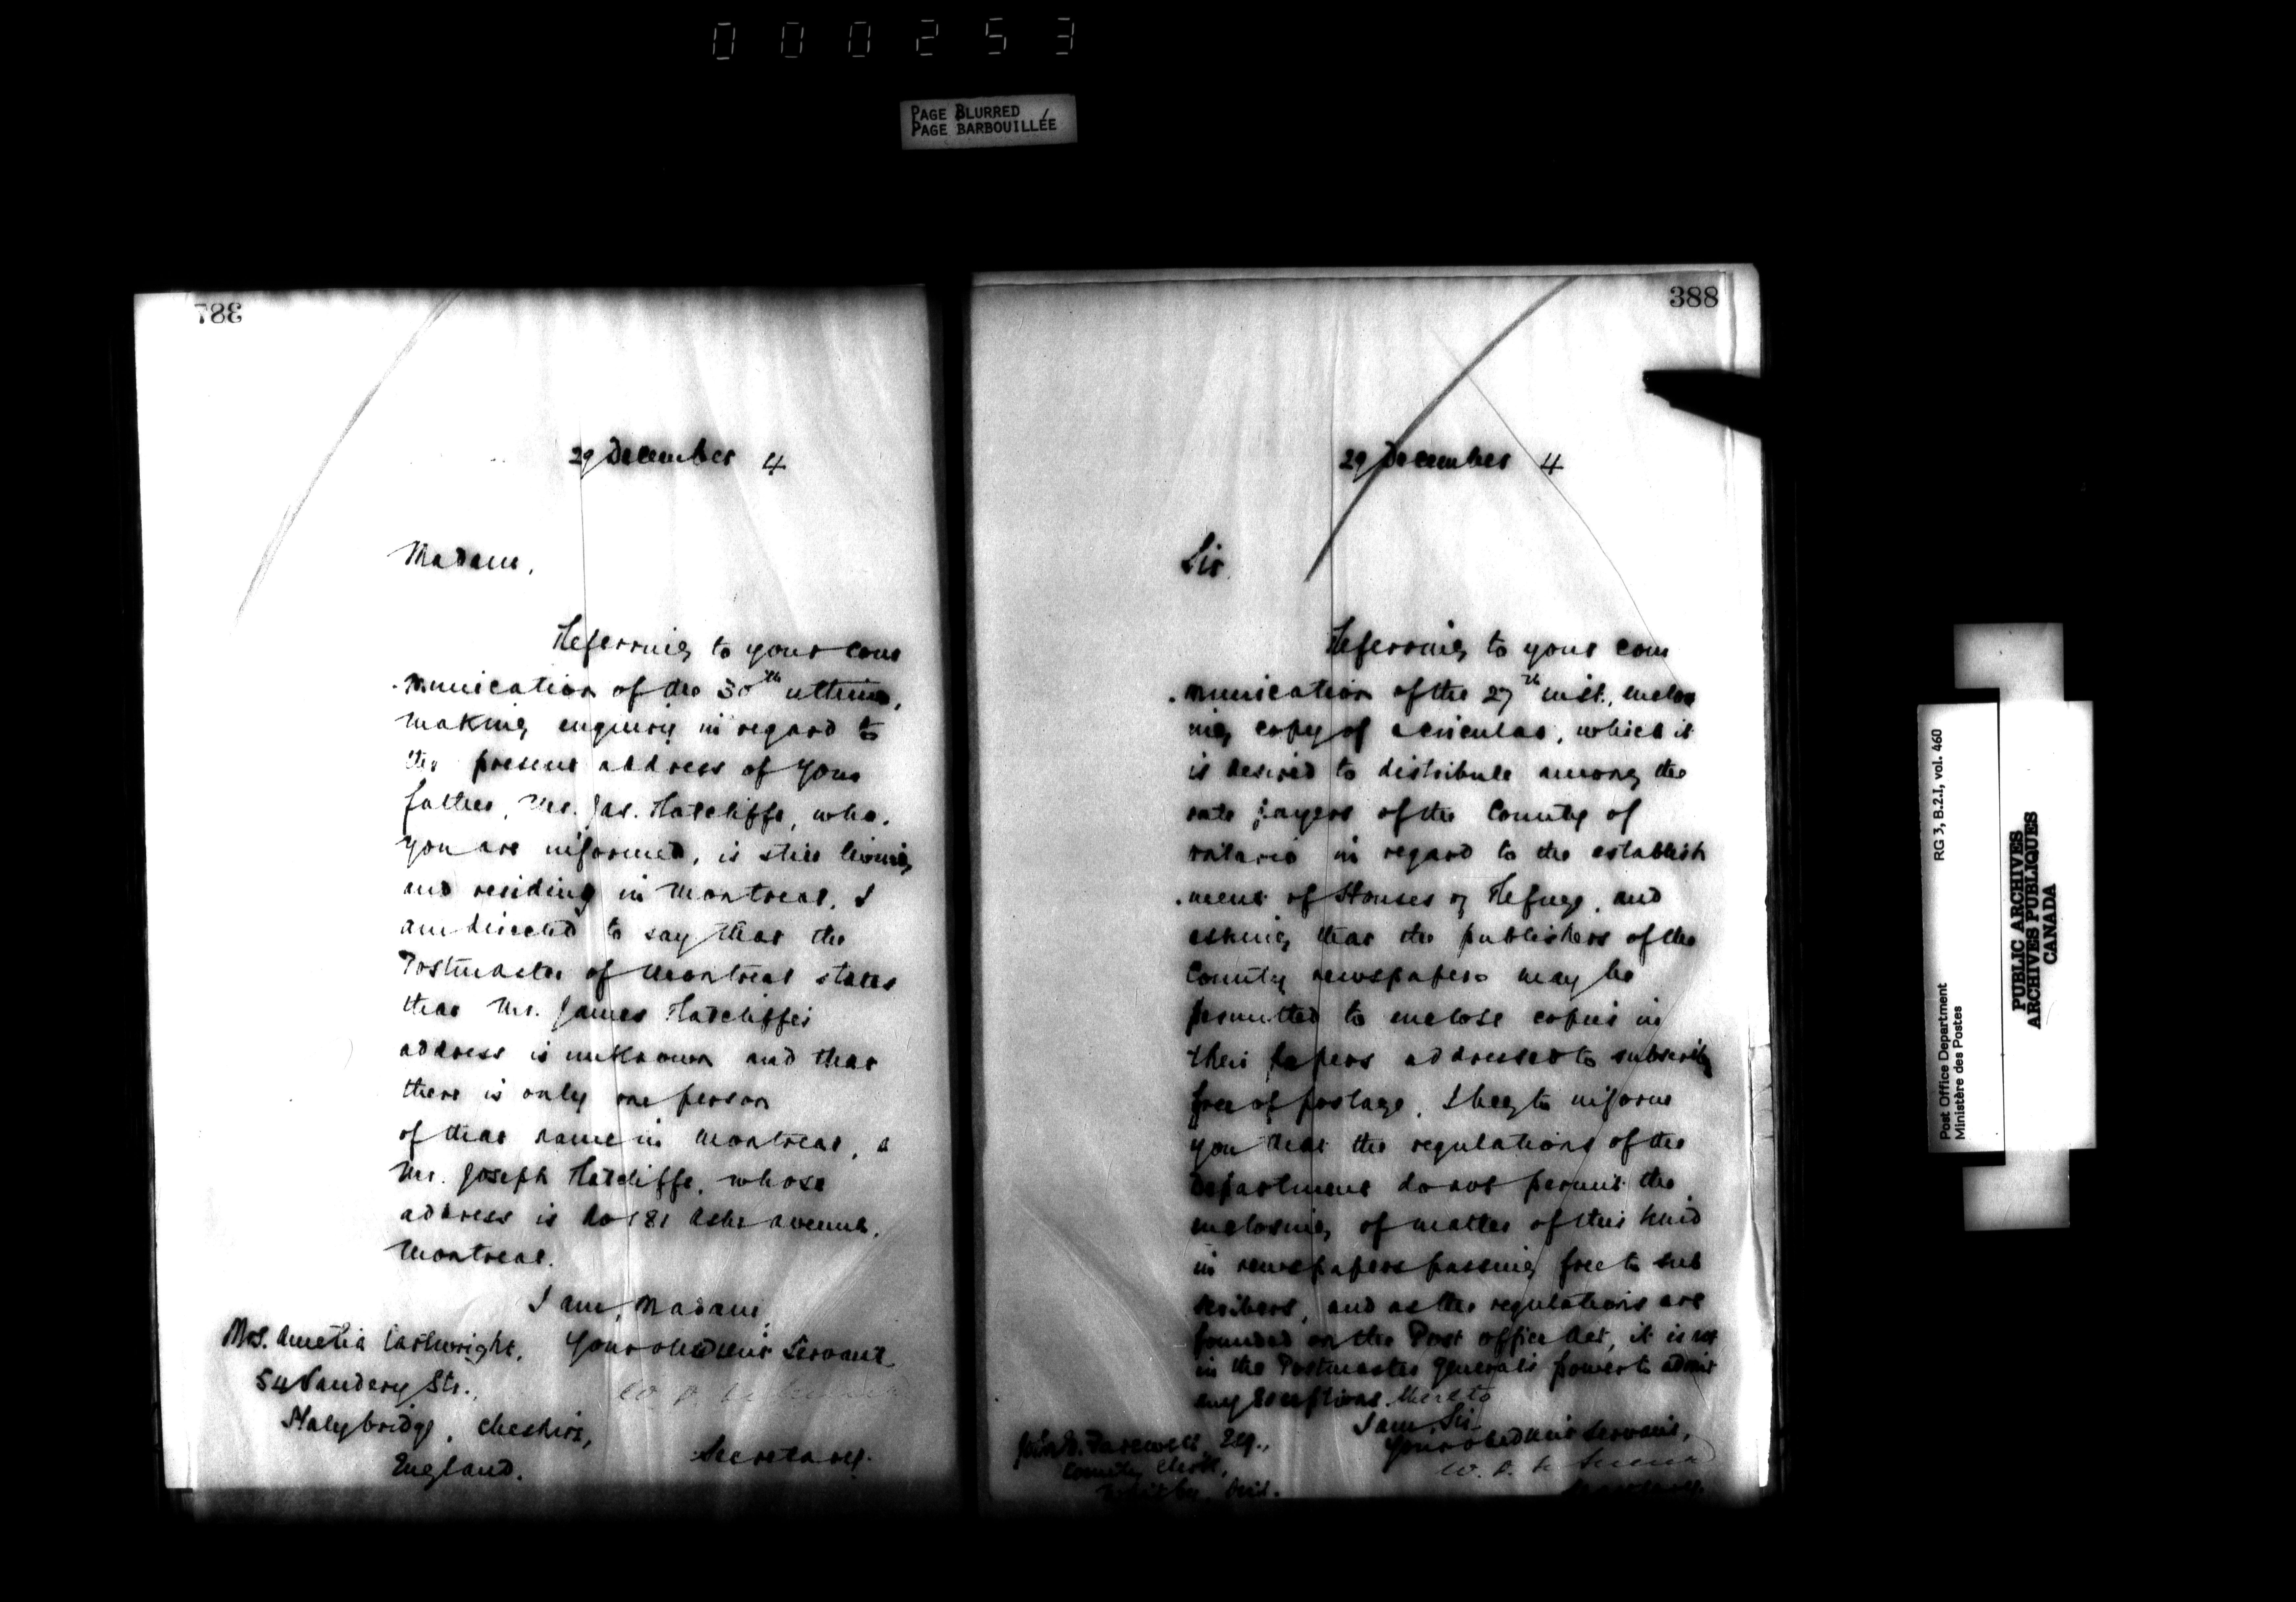 000253
PAGE BLURRED
PAGE BARBOUILLÉE
387
29 December 4
Madam,
Referring to your com
munication of the 30th ultimo,
making enquiry in regard to
the present address of your
father, Mr. Jas. Ratcliffe, who,
you are informed, is still living
and residing in Montreal. I
am directed to say that the
Postmaster of Montreal states
that Mr. James Ratcliffe's
address is unknown and that
there is only one person
of that name in Montreal, a
Mr. Joseph Ratcliffe, whose
address is No 181 Ash avenue,
Montreal.
I am, Madam,
Your obedient Servant
Secretary.
Mrs. Amelia Cartwright,
54 Str.,
Stalybridge, Cheshire,
England.
388
29 December 4
Sir,
Referring to your com
munication of the 27th inst., enclos
ing copy of a circular, which it
is desired to distribute among the
rate payers of the County of
Ontario in regard to the establish
ment of Houses of Refuge, and
asking that the publishers of the
County newspapers may be
permitted to enclose copies in
their papers addressed to subscribers
free of postage, I beg to inform
you that the regulations of the
Department do not permit the
enclosing of matter of this kind
in newspapers passing free to sub
scribers, and as the regulations are
founded on the Post office Act, it is not
in the Postmaster General's power to admit
any exceptions thereto
I am, Sir,
Your obedient Servant,
Secretary.
John E. Farewell, Esq.,
County Clerk,
Whitby, Ont.
RG 3, B.2.I, vol. 460
Post Office Department
Ministère des Postes
PUBLIC ARCHIVES
ARCHIVES PUBLIQUES
CANADA